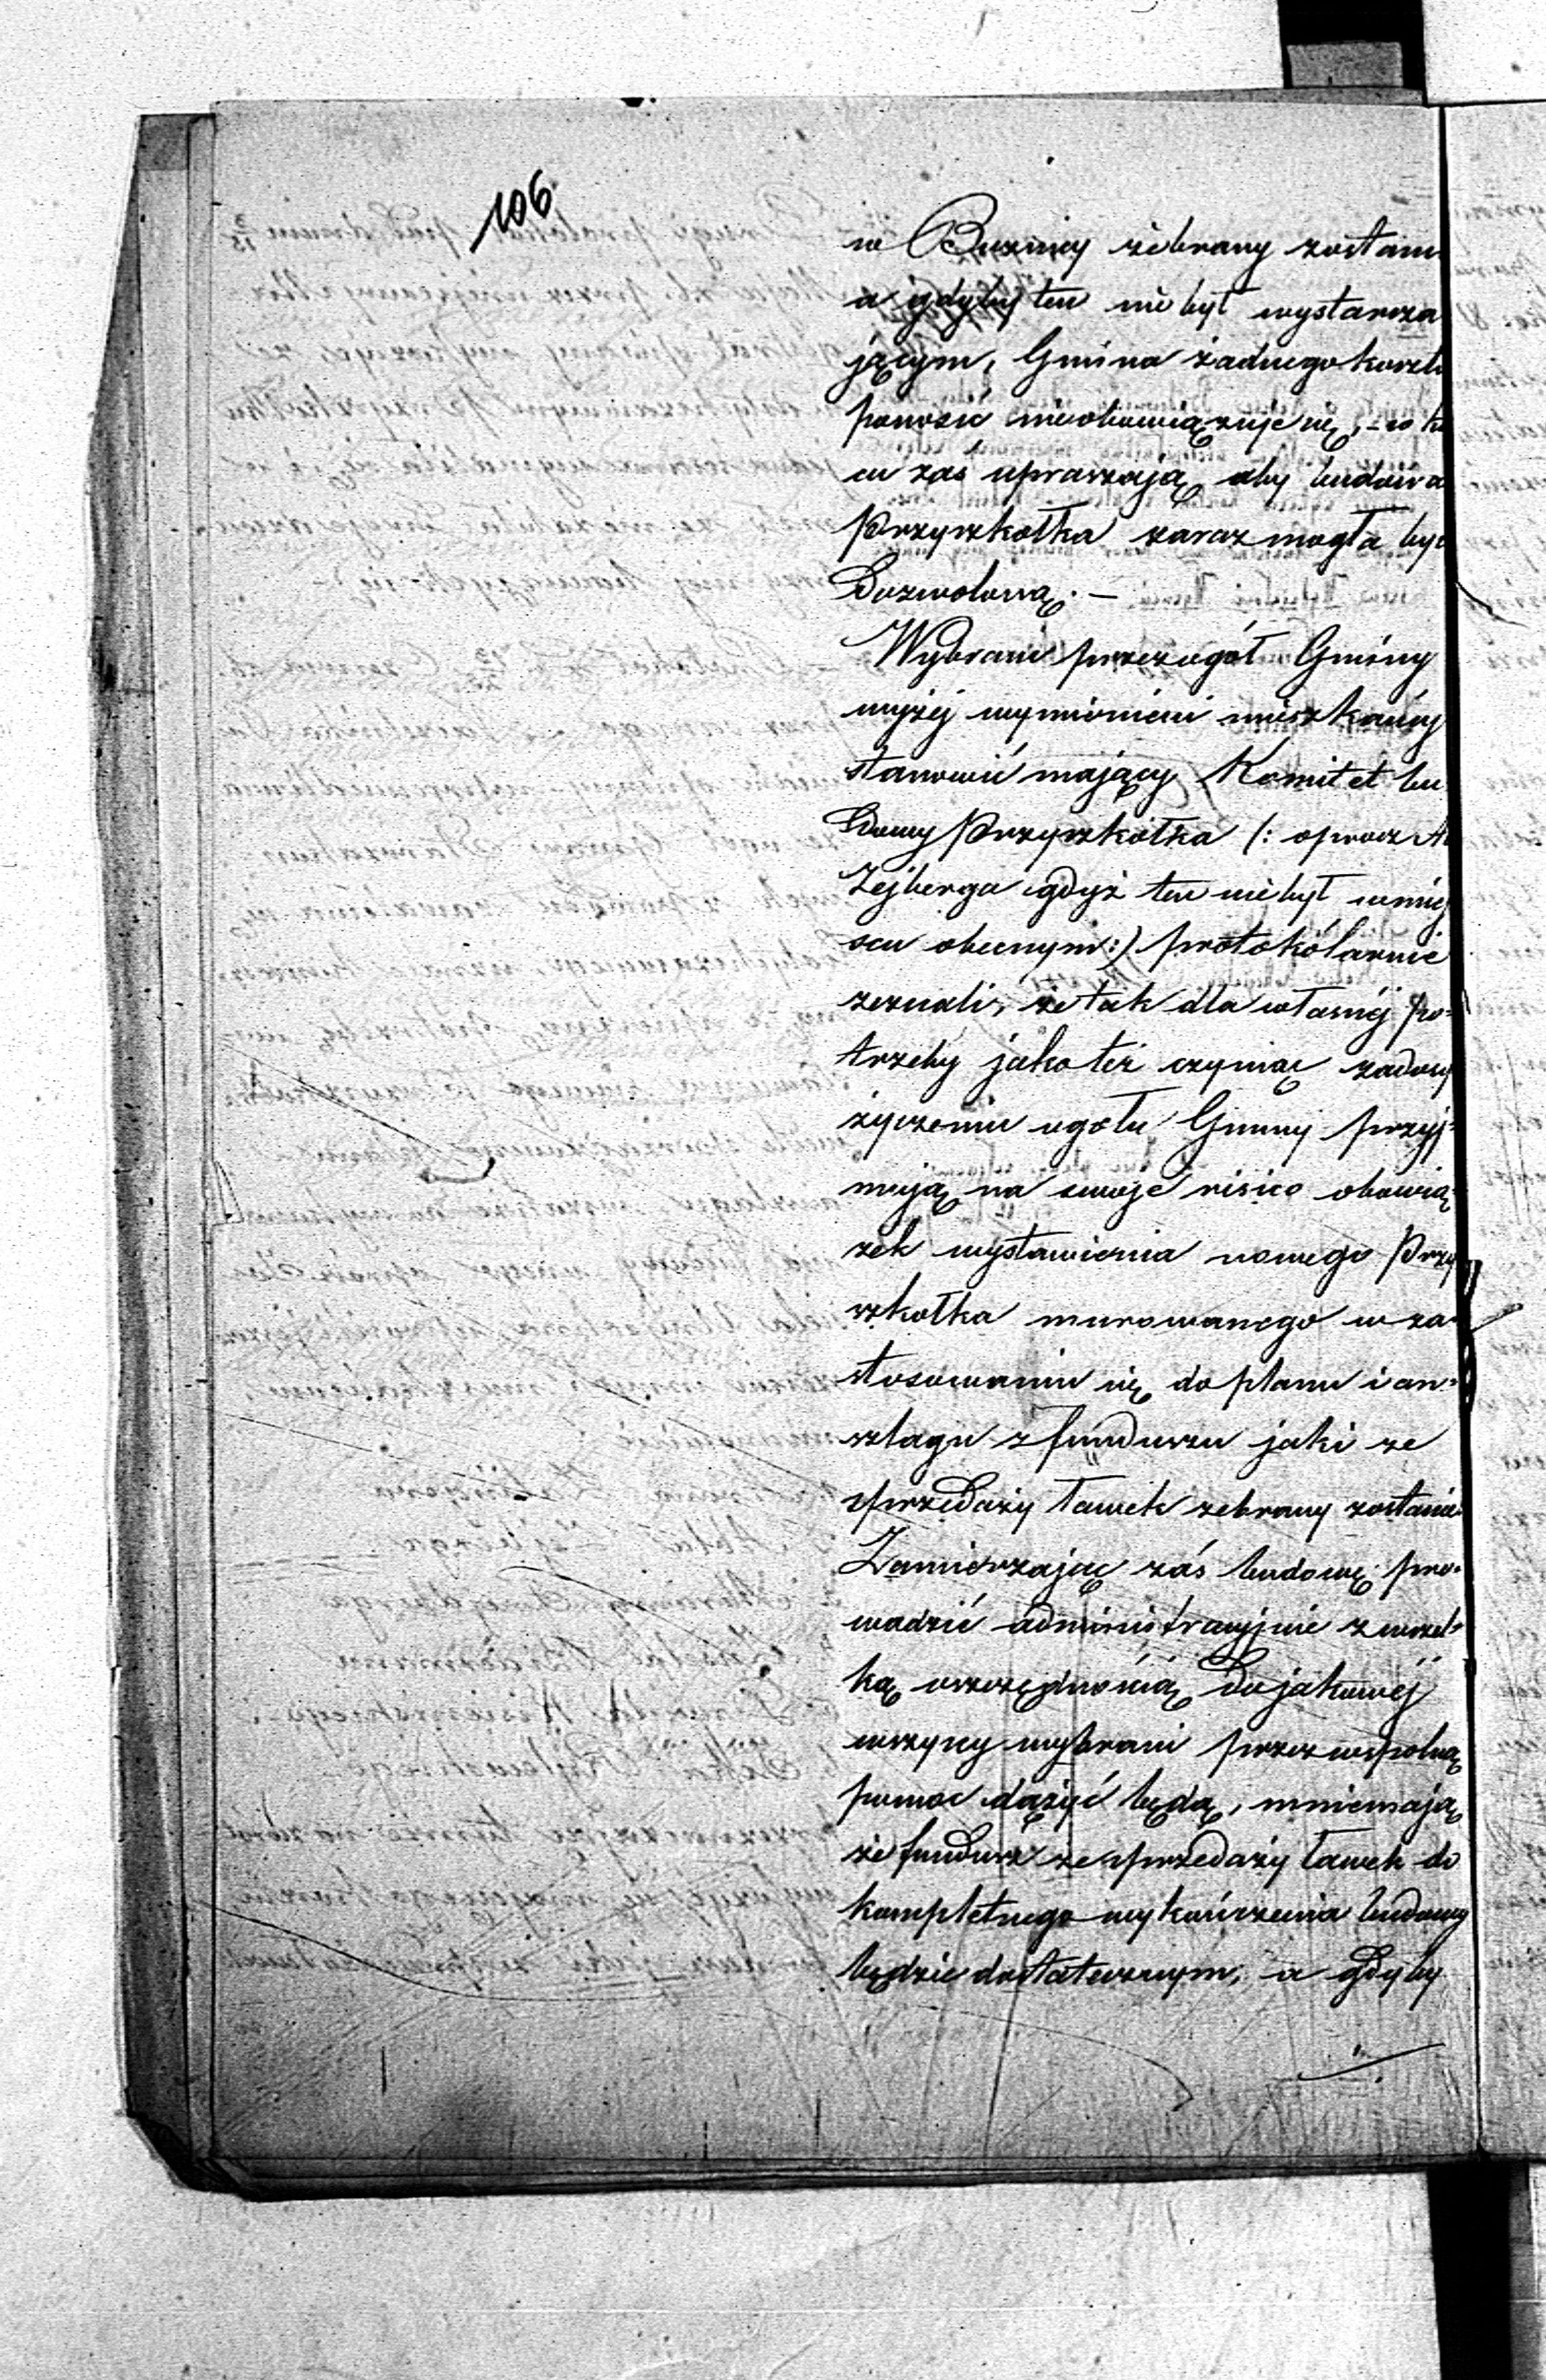 106
w Buznicy zebrany zostani
a gdyby ten nie był wystarcza
jącym, Gmina żadnego koszt
ponosić nieobowiązuje się, - w
zaś upraszają aby budowa
Przyszkółka zaraz mogła być
Dozwoloną. —
Wybrani przez ogół Gminy
wyżej wymienieni mieszkańcy
stanowić mający Komitet bu
dowy Przyszkółka (: oprócz
Zejberga gdyż ten nie był w miej
scu obecnym :) protokólarnie
zeznali, że tak dla własnéj po=
trzeby jako téż czyniąc zadosyć
życzeniu ogołu Gminy przyj=
mują na swoje risico obowią=
zek wystawienia nowego Przy
szkołka murowanego w za=
stosowaniu się do planu i an=
szlagu z funduszu jaki ze
sprzedaży ławek zebrany zostanie
Zamierzając zaś budowę pro=
wadzić administracyjnie z wszel=
ką oszczędnością do jakowéj
wszyscy wybrani przez wspolną
pomoc dążyć będą, mniemają
że fundusz ze sprzedaży ławek do
kompletnego wykończenia budowy
będzie dostatecznym, a gdyby